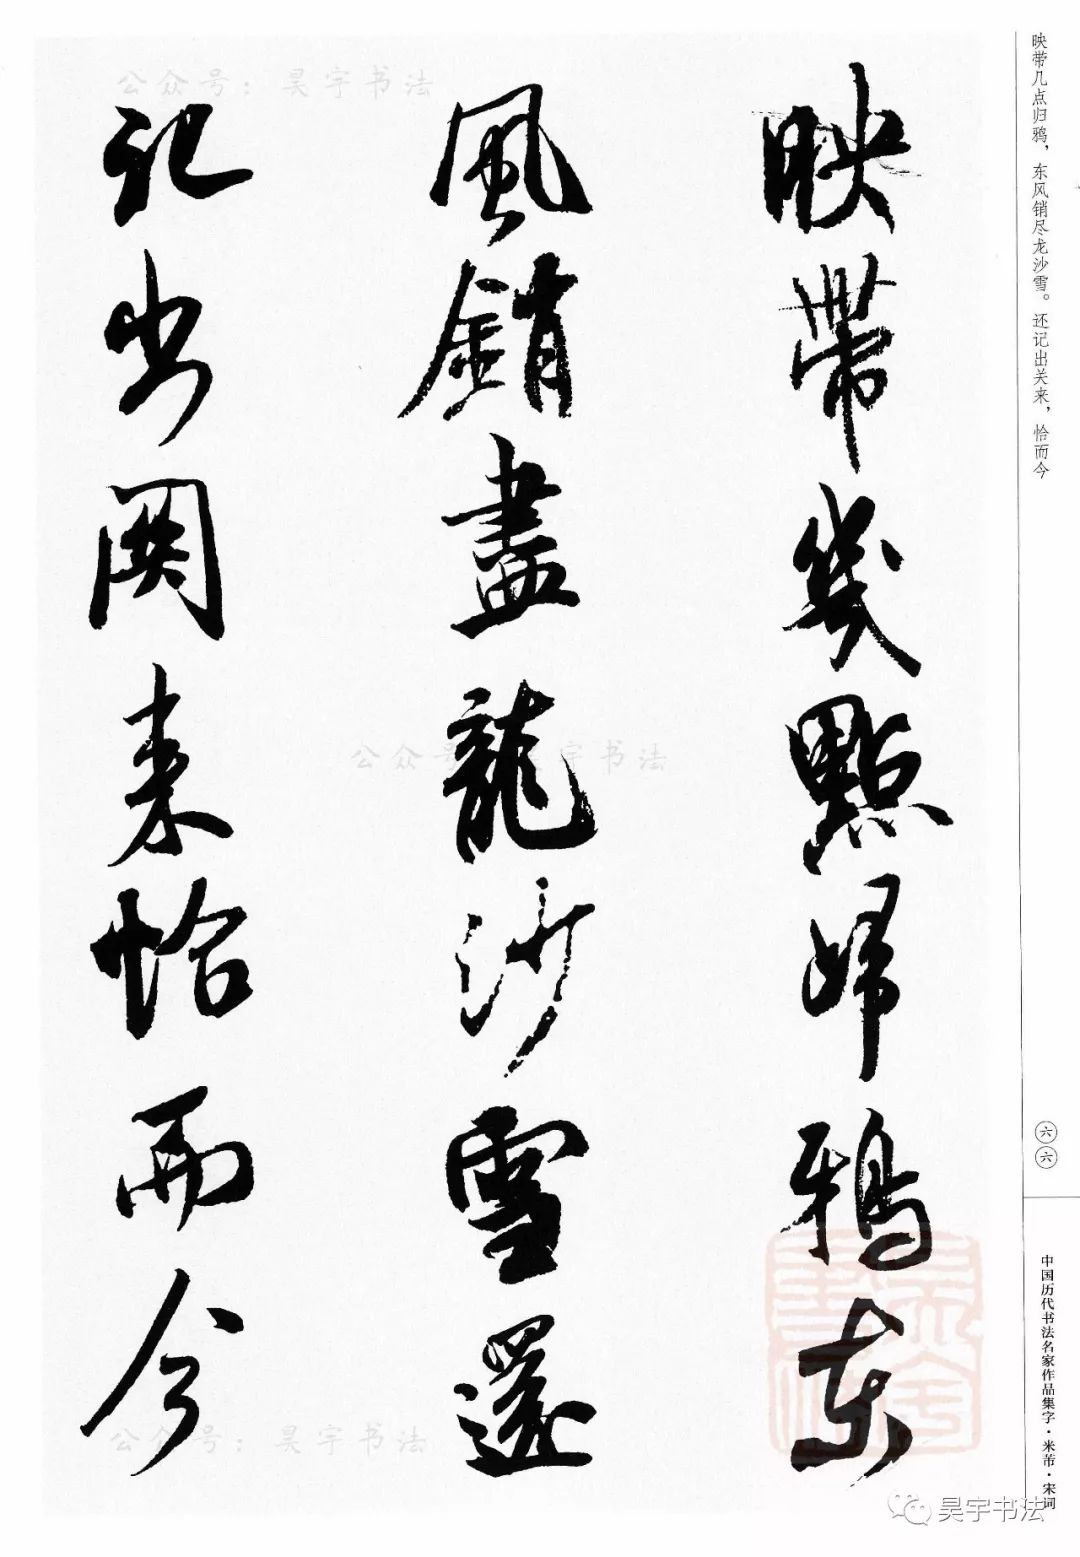 映带几点归鸦，东风销尽龙沙雪。还记出关来，恰而今
映帶幾點歸鴉東
風銷盡龍沙雪還
記出關來恰而今
六六
中国历代书法名家作品集字·米芾·宋词
公众号：昊宇书法
公众号：昊宇书法
公众号：昊宇书法
昊宇书法